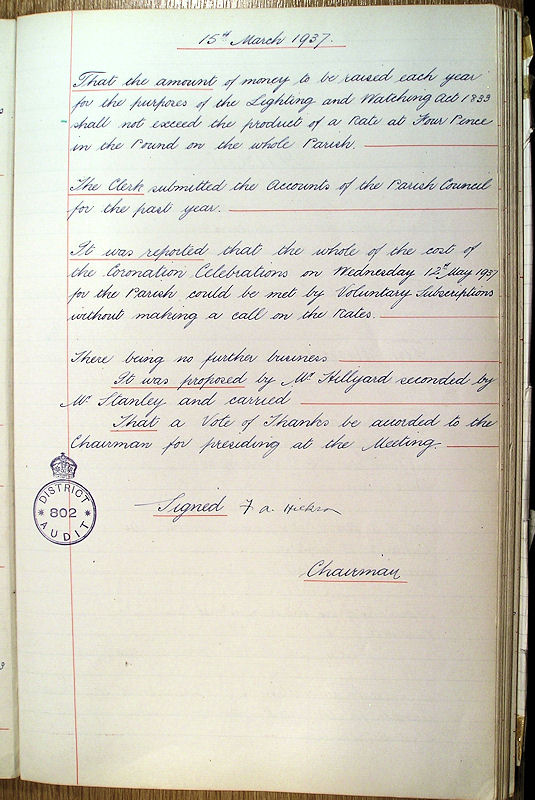 15th March 1937.
That the amount of money to be raised each year
for the purposes of the Lighting and Watching Act 1833
shall not exceed the product of a Rate at Four Pence
in the Pound on the whole Parish.
The Clerk submitted the Accounts of the Parish Council
for the past year.
It was reported that the whole of the cost of
the Coronation Celebrations on Wednesday 12th May 1937
for the Parish could be met by Voluntary Subscriptions
without making a call on the Rates.
There being no further business
It was proposed by Mr Hillyard seconded by
Mr Stanley and carried
That a Vote of Thanks be accorded to the
Chairman for presiding at the Meeting.
Signed F. A.
Chairman
DISTRICT
802
AUDIT